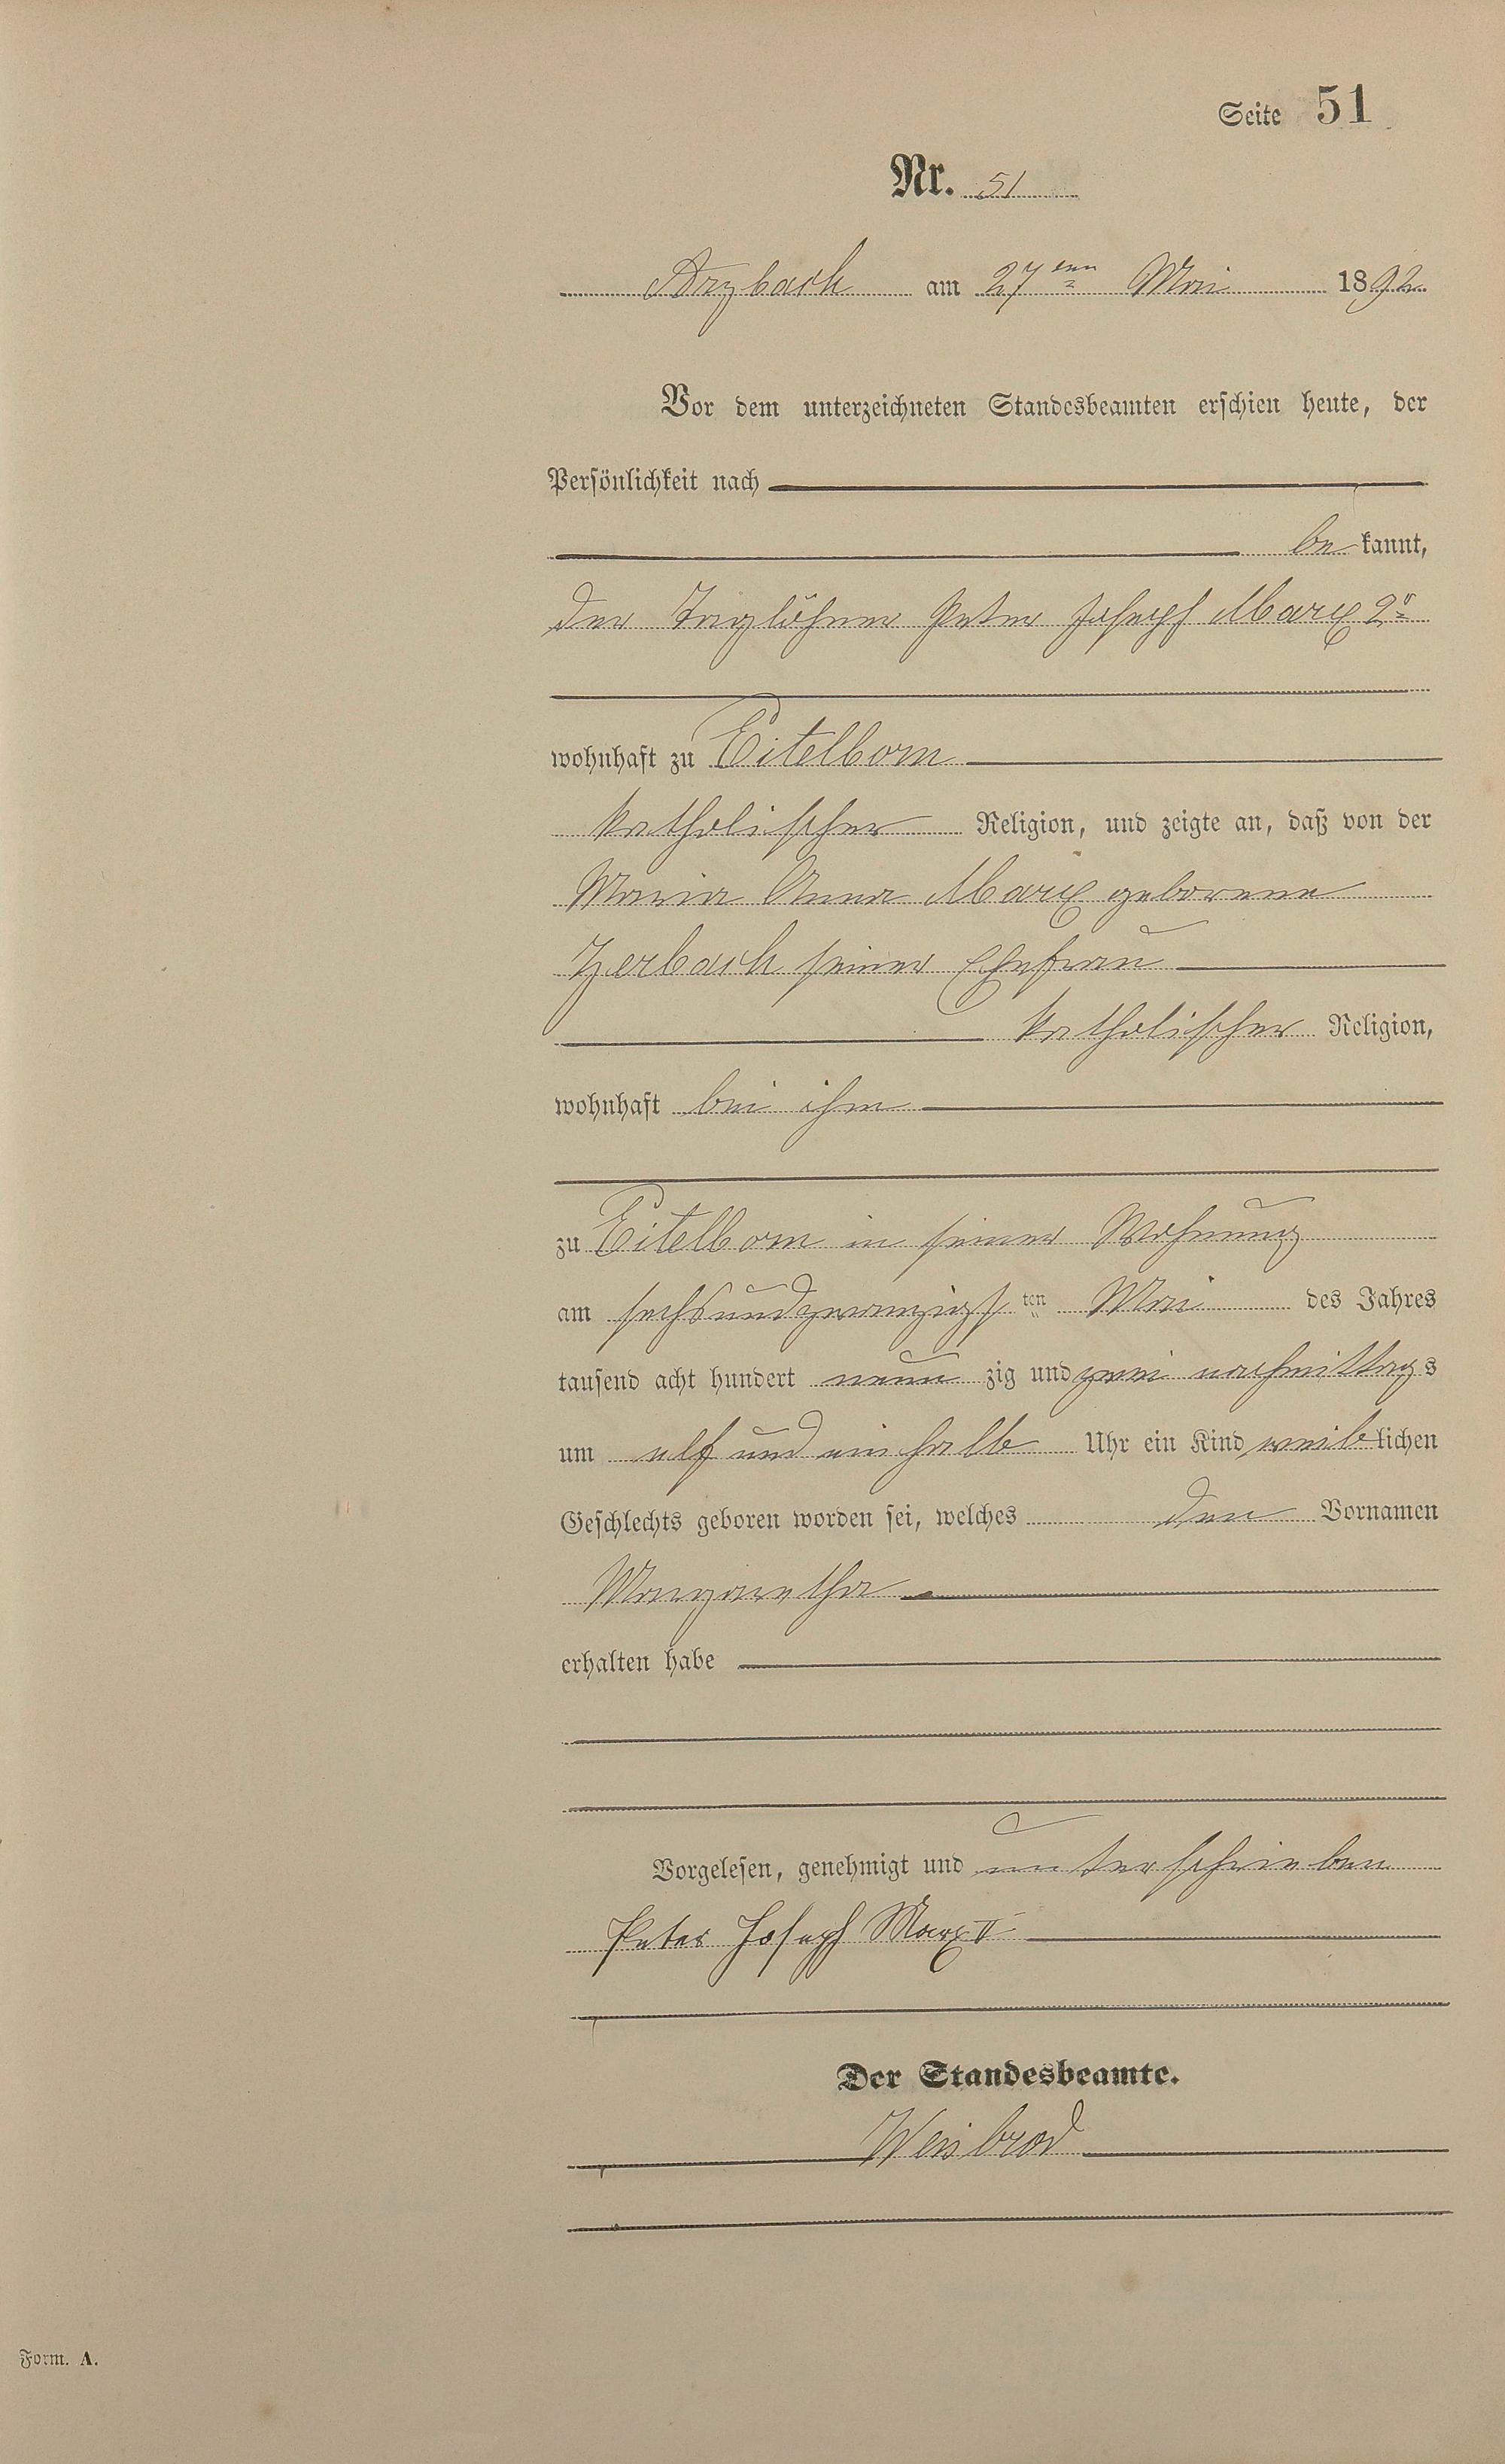 Seite 51
Nr. 51
Arzbach am 27ten Mai 1892
Vor dem unterzeichneten Standesbeamten erschien heute, der
Persönlichkeit nach
bekannt,
der Taglöhner Peter Joseph Marx 2r
wohnhaft zu Eitelborn
katholischer Religion, und zeigte an, daß von der
Maria Anna Marx geborene
Zerbach seiner Ehefrau
katholischer Religion,
wohnhaft bei ihm
zu Eitelborn in seiner Wohnung
am sechsundzwanzigsten Mai des Jahres
tausend acht hundert neunzig und zwei nachmittags
um elf und ein halb Uhr ein Kind weiblichen
Geschlechts geboren worden sei, welches den Vornamen
Margaretha
erhalten habe
Vorgelesen, genehmigt und unterschrieben
Peter Joseph Marx II
Der Standesbeamte.
Weisbrod
Form. A.